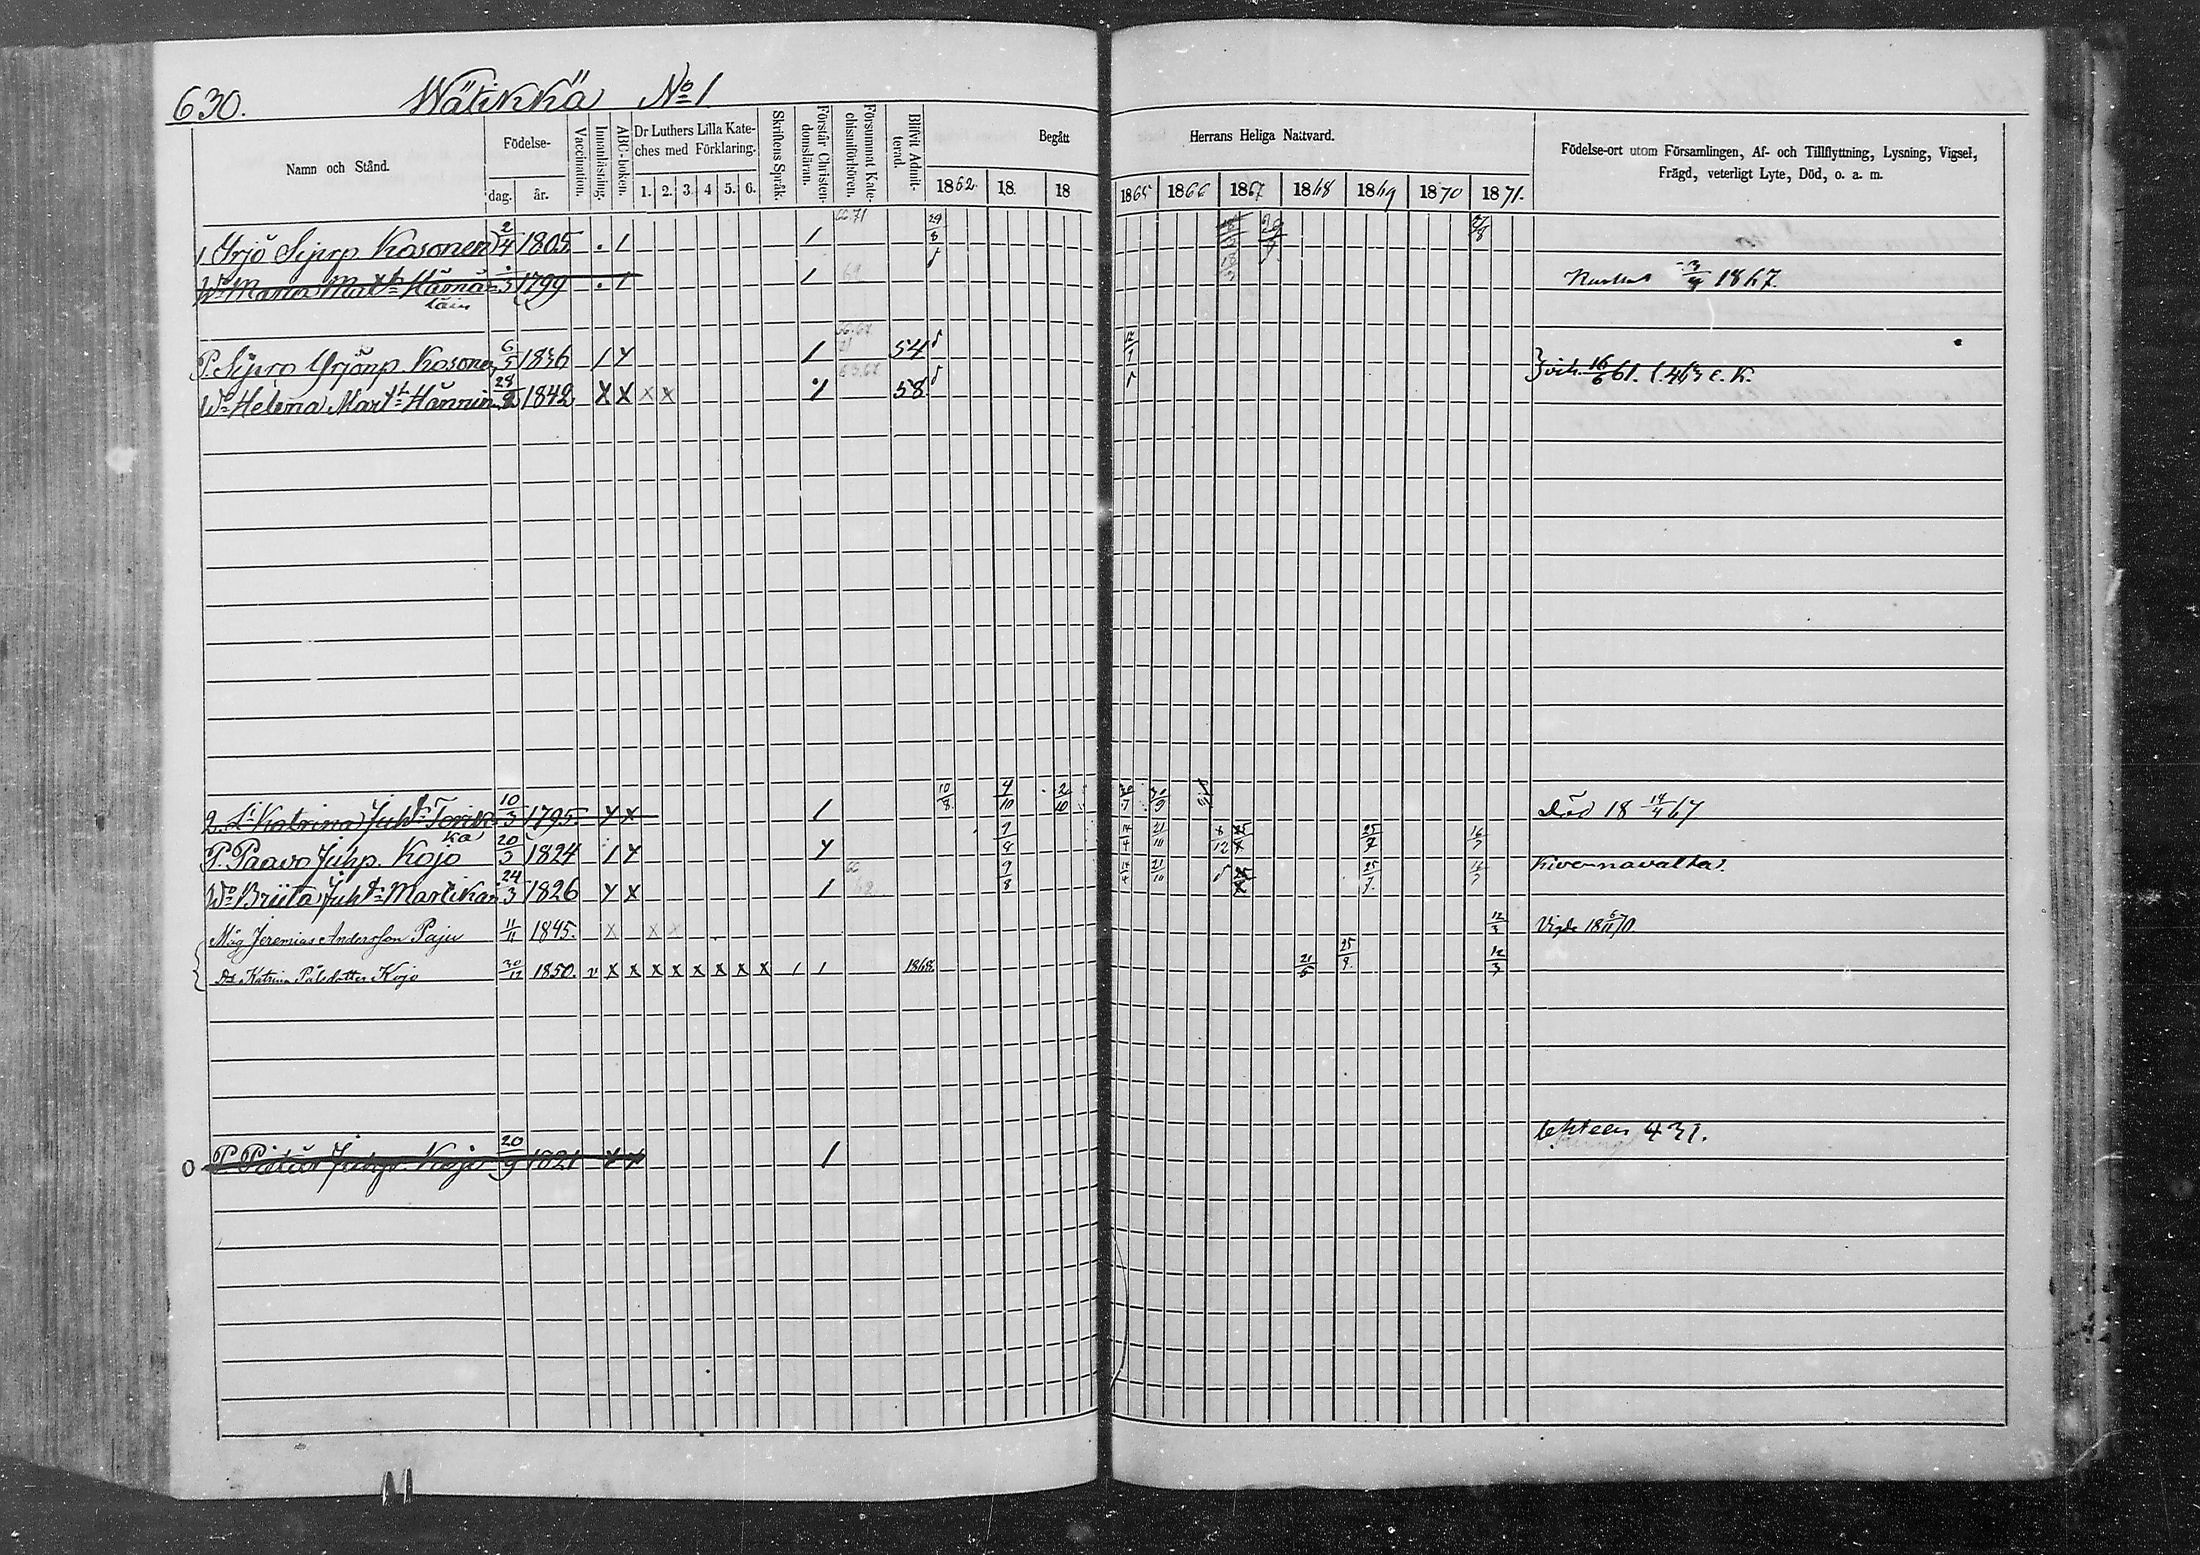 630. Wätikkä No 1
Namn och Stånd.
Födelse-
dag. år.
Vaccination.
Innanläsning.
ABC-boken.
Dr Luthers Lilla Kate-
ches med Förklaring.
1. 2. 3. 4 5. 6.
Skriftens Språk.
Förstår Christen-
domsläran.
Försummat Kate-
chismiförhören.
Blifvit Admit-
terad.
Begått Herrans Heliga Nattvard.
1862. 18. 18 1865 1866 1867 1868 1869 1870 1871.
Födelse-ort utom Församlingen, Af- och Tillflyttning, Lysning, Vigsel,
Frägd, veterligt Lyte, Död, o. a. m.
1 Yrjö Siprp Kosonen 2/4 1805 . 1 1 66 71 29/8 27/8
Wo Maria Martt Hämä- 1799 . 1 1 69 1867.
läin
P. Sipro Yrjönp Kosonen 6/5 1836 1 Y 1 54 12/1
Wo Helena Martt Hännin 28 1842 X X X X 58 16/6 61. C. K.
2. Katrina Juht Torik- 10/3 1795. Y X 1 10/8 4/10 2/10 30/7 30/9 Död 18 14/4 67
ka
P. Paavo Juhp. Kojo 20/3 1824 1 Y Y 9/8 14/4 21/10 8/12 25/7 16/7 Kivennavalta.
Wo Briita Juht Martikai 24/3 1826 Y X 1 62 9/8 14/4 21/10 25/7. 16/7
Måg Jeremias Andersson Paju 11/11 1845. X X X 12/3 Vigde 18 6/11 70.
Dr Katrina Pålsdotter Kojo 30/12 1850. v X X X X X X X X 1 1 1868. 21/6 25/9. 12/3
0 P. Pietar Juhp Kojo 20/9 1821 Y Y 1 431.